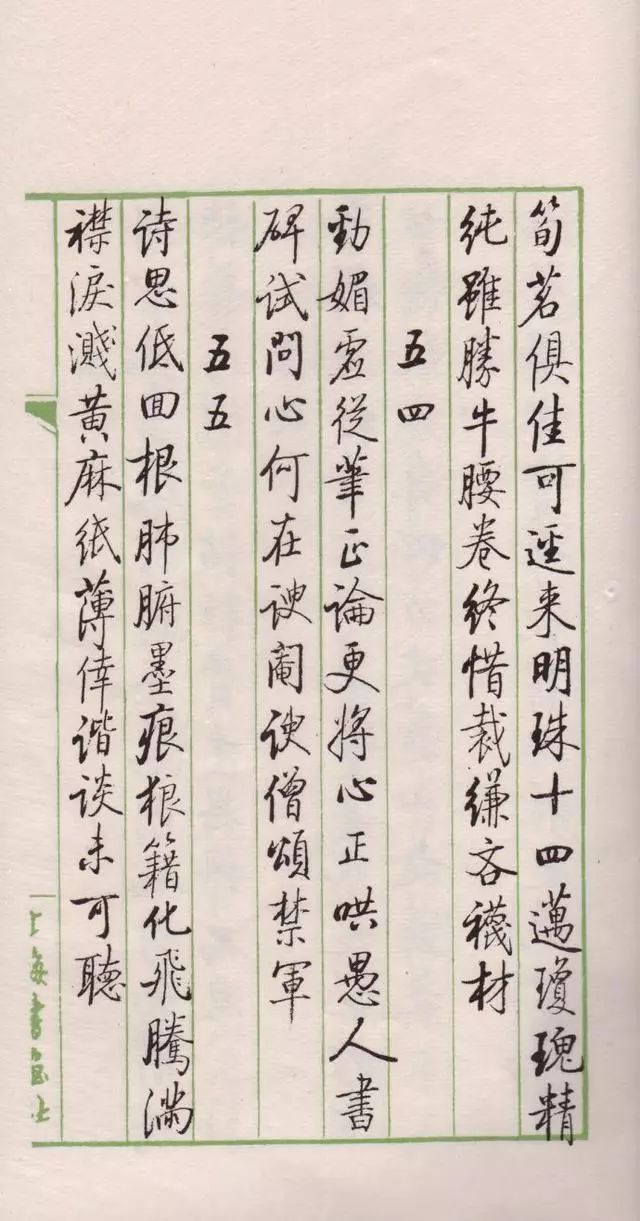 筍茗俱佳可逕来明珠十四邁瓊瑰精
纯雖勝牛腰卷終惜裁縑吝襪材
五四
勁媚虛從筆正論更將心正哄愚人書
碑試問心何在諛阉諛僧頌禁軍
五五
诗思低回根肺腑墨痕狼籍化飛騰滿
襟淚濺黄麻纸薄倖谐谈未可聽
上海書畫社